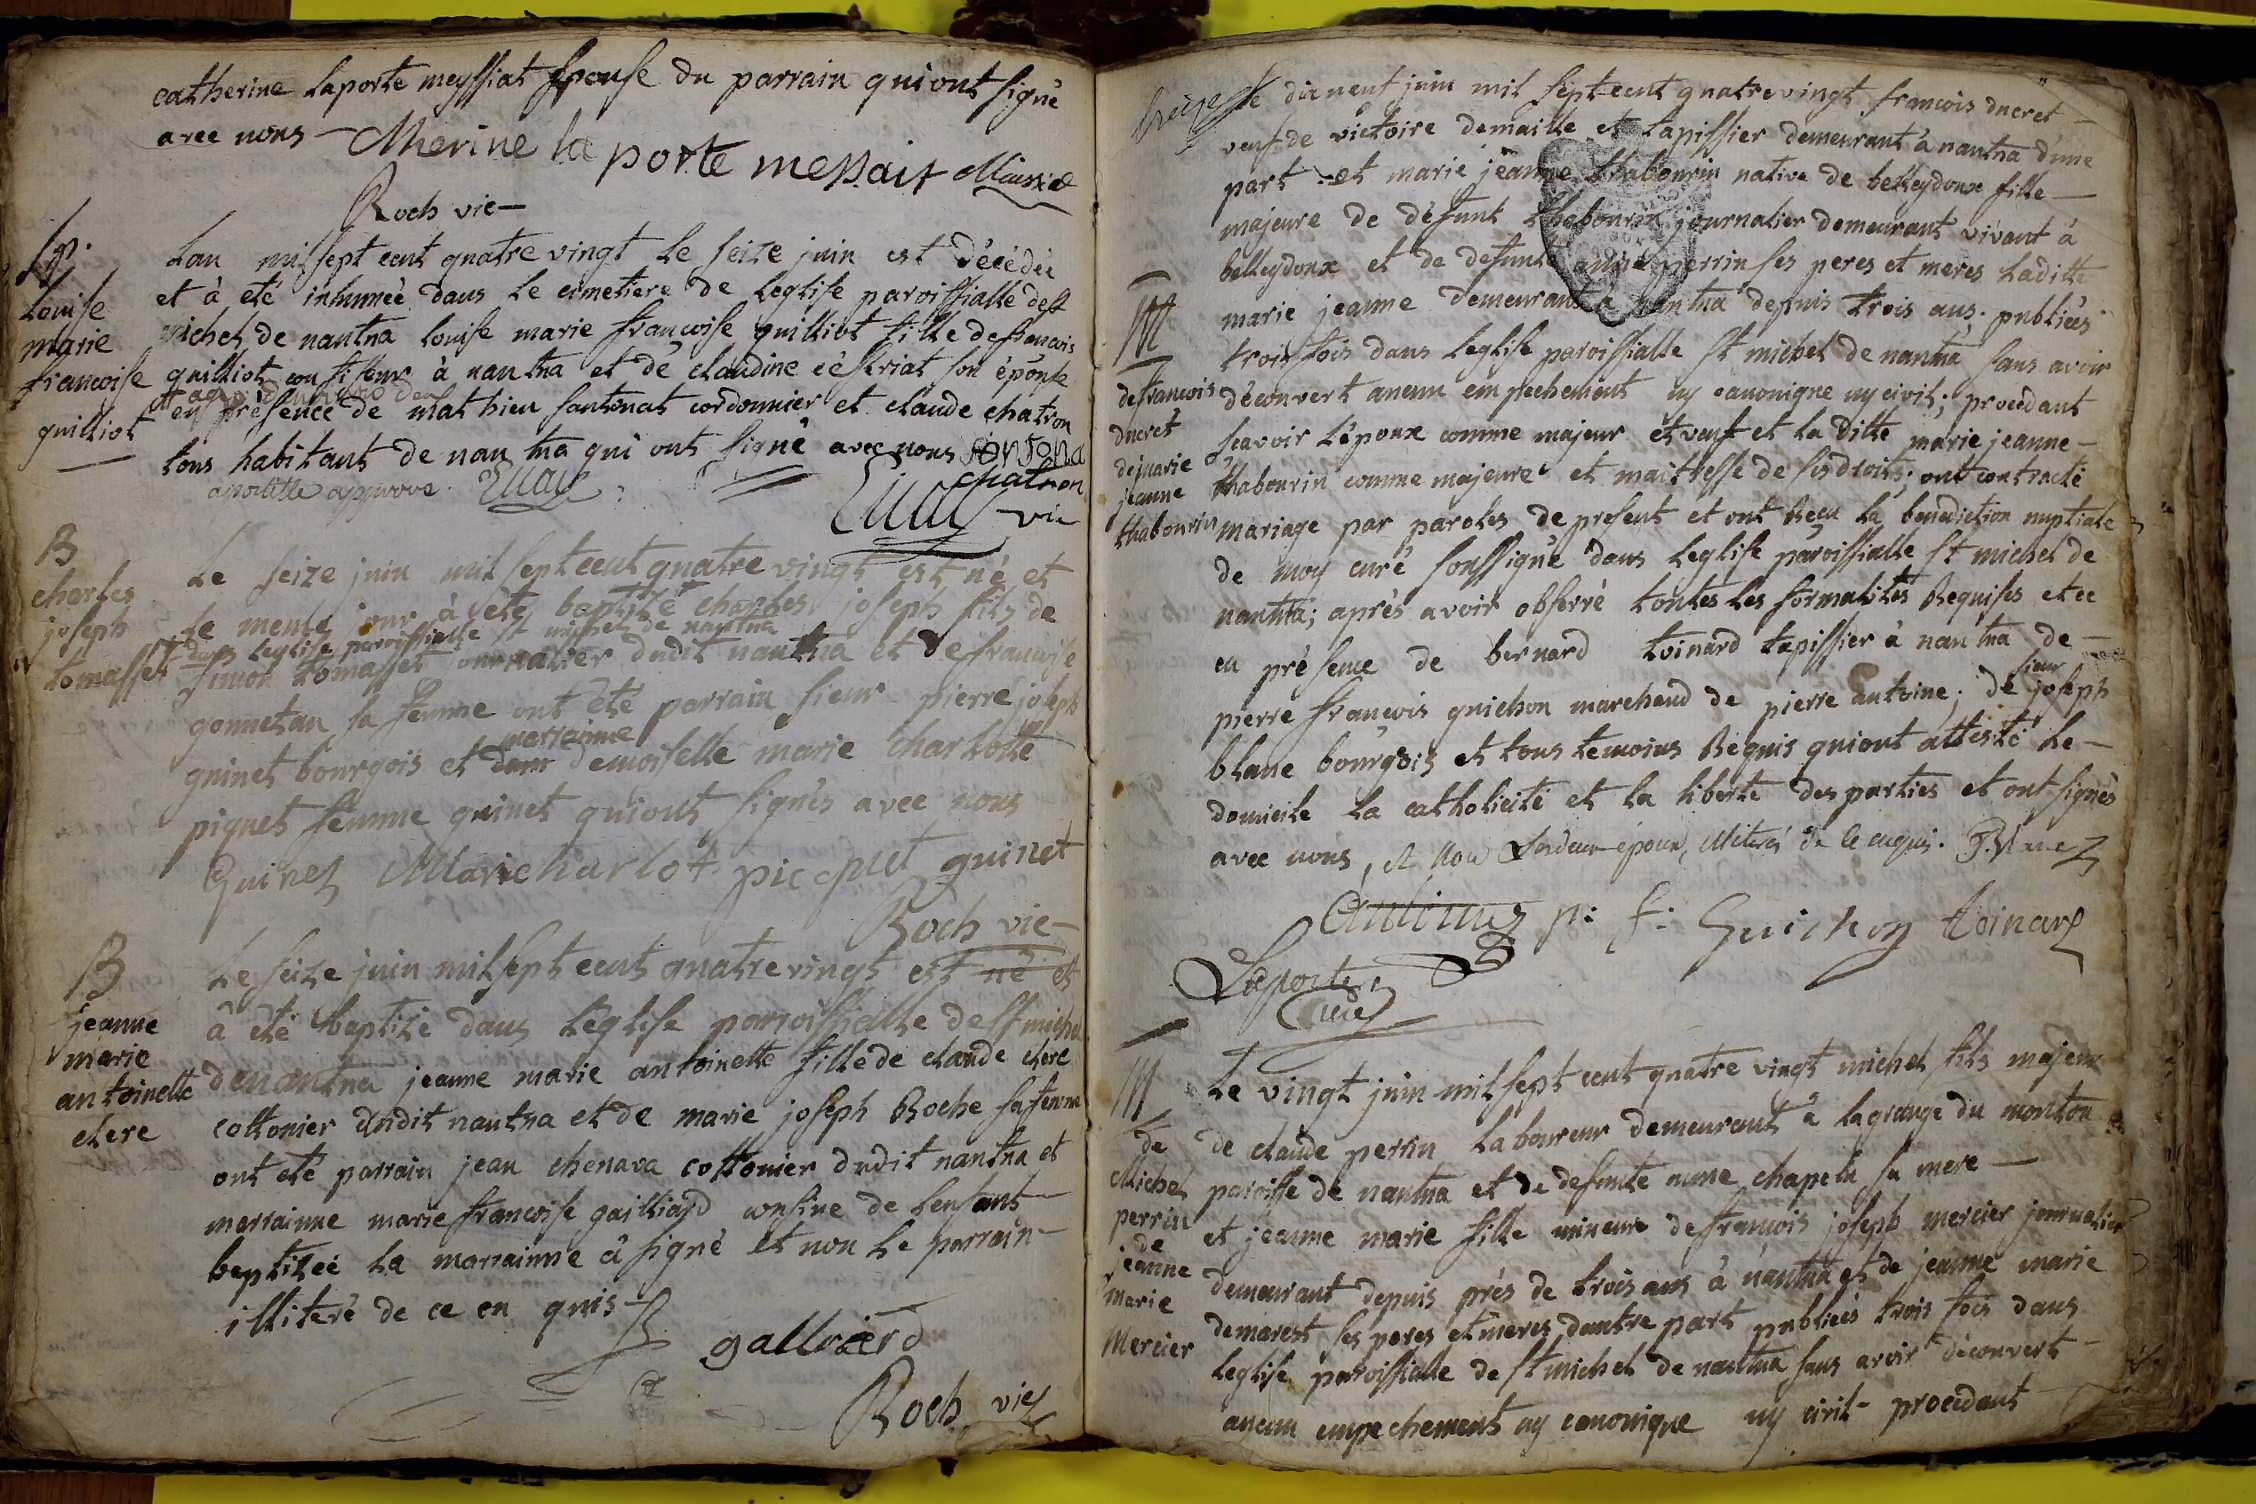 catherine laporte meyssiat Epouse du parrain qui ont signé
avec nous – Cherine la porte messait
Roch vic
Sep.
louise
marie
francoise
guilliot
Lan mil sept cent quatre vingt le seize juin est décédée
et à eté inhumée dans le cimetiere de leglise paroissialle de st
michel de nantua louise marie francoise guilliot fille de francois
guilliot confiseur à nantua et de claudine son épouse
en présence de mathieu santonat cordonnier et claude chatron
tous habitant de nantua qui ont signé avec nous santona
apostille approuvé
chatron
vic
B
charles
joseph
tomasset
Le seize juin mil sept cent quatre vingt est né et
le meme jour à été baptizé charles joseph fils de
dans leglise paroissialle st michel de nantua
simon tomasset journalier dudit nantua et de francoise
gonnetan sa femme ont été parrain sieur pierre joseph
marrainne
guinet bourgois et demoiselle marie charlotte
piquet femme guinet qui ont signés avec nous
Guinet Marie charlot picquet guinet
Roch vic
B
jeanne
marie
antoinette
clere
Le seize juin mil sept cent quatre vingt est né et
à été baptizé dans léglise parroissialle de st michel
de nantua jeanne marie antoinette fille de claude clere
cottonier dudit nantua et de marie joseph Roche sa femme
ont eté parrain jean chenava cottonier dudit nantua et
marrainne marie francoise gailliard cousine de lenfant
baptizée la marrainne à signé et non le parrain
illiteré de ce en quis
galliard
Roch vic
Le dix neuf juin mil sept cent quatre vingt francois ducret
veuf de victoire demaille et tapissier demeurant à nantua d'une
part et marie jeanne thabourin native de belleydoux fille
majeure de défunt thabourin journalier demeurant vivant à
belleydoux et de defunte perrin ses peres et meres laditte
marie jeanne demeurant à nantua depuis trois ans. publiées
trois fois dans leglise paroissialle st michel de nantua sans avoir
découvert aucun empechement ny canonique ny civil; procedant
scavoir lépoux comme majeur et veuf et la ditte marie jeanne
thabourin comme majeure et maitresse de ses droits; ont contracté
mariage par paroles de present et ont Reçu la benediction nuptiale
de moy curé soussigné dans leglise paroissialle st michel de
nantua; aprés avoir observé toutes les formalités Requises et ce
en présence de bernard toinard tapissier à nantua de
pierre francois guichon marchand de pierre antoine; de sieur joseph
blanc bourgois et tous temoins Requis qui ont attesté le
domicile la catholicité et la liberté des parties et ont signés
avec nous, et non époux, illiterés de ce enquis.
p: f: Guichon toinard
Laporte
Curé
M
de francois
ducret
de marie
jeanne
thabourin
M
de
Michel
perrin
de
jeanne
marie
Mercier
Le vingt juin mil sept cent quatre vingt michel fils majeur
de claude perrin laboureur demeurant à lagrange du mouton
paroisse de nantua et de defunte chapelu sa mere
et jeanne marie fille mineure de francois joseph mercier journalier
demeurant depuis prés de trois ans à nantua et de jeanne marie
demarest ses peres et meres dautre part publiées trois fois dans
leglise paroissialle de st michel de nantua sans avoir découvert
aucun empechement ny canonique ny civil procedant